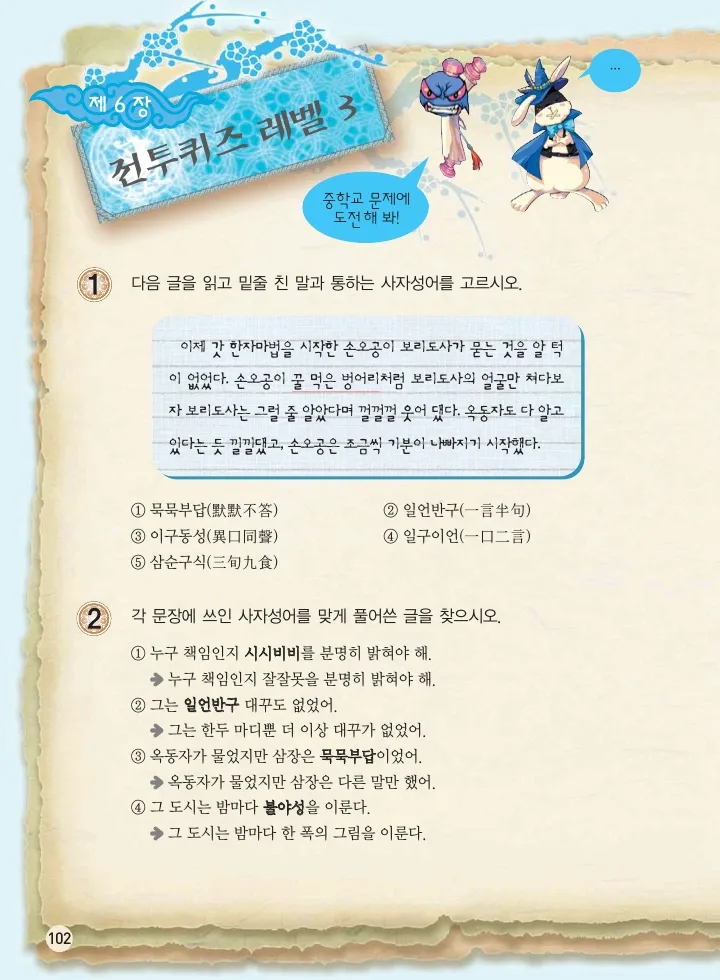 제 6 장
전투퀴즈 레벨 3
...
중학교 문제에
도전해 봐!
1 다음 글을 읽고 밑줄 친 말과 통하는 사자성어를 고르시오.
이제 갓 한자마법을 시작한 손오공이 보리도사가 묻는 것을 알 턱
이 없었다. 손오공이 꿀 먹은 벙어리처럼 보리도사의 얼굴만 쳐다보
자 보리도사는 그럴 줄 알았다며 껄껄껄 웃어 댔다. 옥동자도 다 알고
있다는 듯 낄낄댔고, 손오공은 조금씩 기분이 나빠지기 시작했다.
① 묵묵부답(默默不答) ② 일언반구(一言半句)
③ 이구동성(異口同聲) ④ 일구이언(一口二言)
⑤ 삼순구식(三旬九食)
2 각 문장에 쓰인 사자성어를 맞게 풀어쓴 글을 찾으시오.
① 누구 책임인지 시시비비를 분명히 밝혀야 해.
➔ 누구 책임인지 잘잘못을 분명히 밝혀야 해.
② 그는 일언반구 대꾸도 없었어.
➔ 그는 한두 마디뿐 더 이상 대꾸가 없었어.
③ 옥동자가 물었지만 삼장은 묵묵부답이었어.
➔ 옥동자가 물었지만 삼장은 다른 말만 했어.
④ 그 도시는 밤마다 불야성을 이룬다.
➔ 그 도시는 밤마다 한 폭의 그림을 이룬다.
102